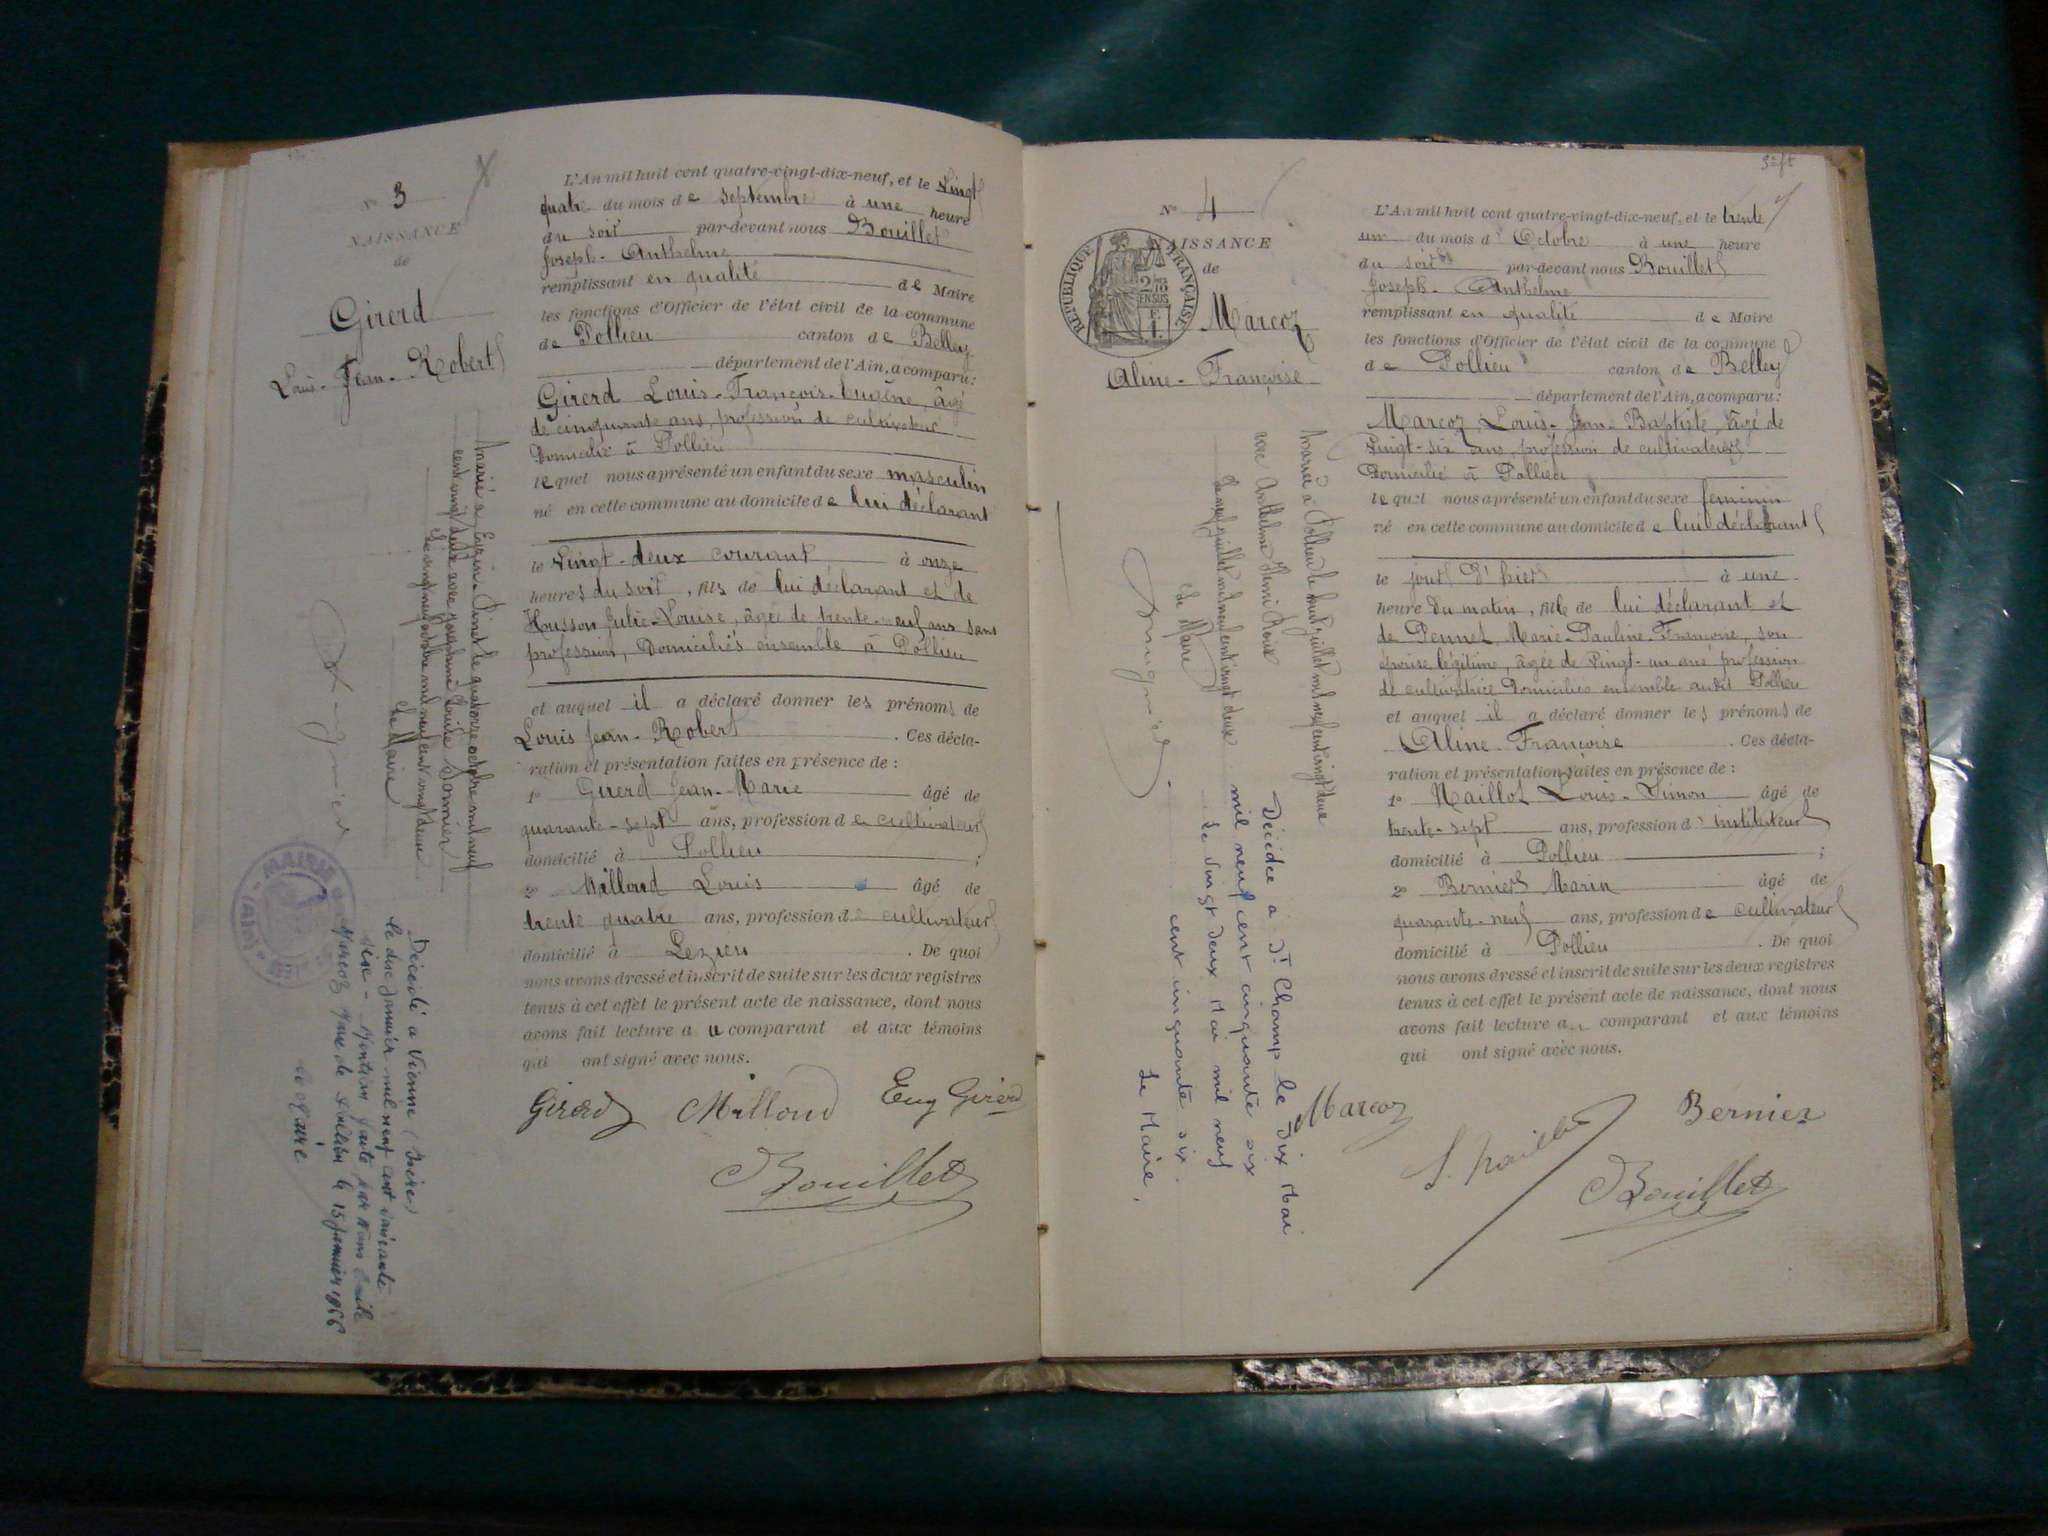 N° 3
NAISSANCE
de
Girerd
Louis-Jean-Robert
L'An mil huit cent quatre-vingt-dix-neuf, et le vingt
quatre du mois de septembre à une heure
du soir par-devant nous Bouillet
Joseph-Anthelme
remplissant en qualité de Maire
les fonctions d'Officier de l'état civil de la commune
de Pollieu canton de Belley
département de l'Ain, a comparu:
Girerd Louis-François-Eugène, âgé
de cinquante ans, profession de cultivateur
domicilié à Pollieu
lequel nous a présenté un enfant du sexe masculin
né en cette commune au domicile de lui déclarant
le vingt-deux courant à onze
heures du soir, fils de lui déclarant et de
Husson Julie-Louise, âgée de trente-neuf ans sans
profession, domiciliés ensemble à Pollieu
et auquel il a déclaré donner les prénoms de
Louis Jean-Robert. Ces décla-
ration et présentation faites en présence de :
1° Girerd Jean-Marie âgé de
quarante-sept ans, profession de cultivateur
domicilié à Pollieu ;
2° Milloud Louis âgé de
trente quatre ans, profession de cultivateur
domicilié à Lezieu. De quoi
nous avons dressé et inscrit de suite sur les deux registres
tenus à cet effet le présent acte de naissance, dont nous
avons fait lecture au comparant et aux témoins
qui ont signé avec nous.
Girerd Milloud Eug Girerd
JBouillet
Marié à Eyzin-Pinet le quatorze octobre mil neuf
cent vingt deux avec Joséphine Louise
Le vingt neuf octobre mil neuf cent vingt deux
Le Maire
Décédé à Vienne (Isère)
le dix janvier mil neuf cent soixante
six - Mention faite par nous
Marcoz Maire de Pollieu le 15 janvier 1966
Le Maire
MAIRIE
(AIN)
3e ft
N° 4
NAISSANCE
de
RÉPUBLIQUE FRANÇAISE
2/10
EN SUS
Marcoz
Aline-Françoise
L'An mil huit cent quatre-vingt-dix-neuf, et le trente
un du mois d'Octobre à une heure
du soir par-devant nous Bouillet
Joseph-Anthelme
remplissant en qualité de Maire
les fonctions d'Officier de l'état civil de la commune
de Pollieu canton de Belley
département de l'Ain, a comparu:
Marcoz Louis-Jean Baptiste, âgé de
vingt-six ans, profession de cultivateur
domicilié à Pollieu
lequel nous a présenté un enfant du sexe féminin
né en cette commune au domicile de lui déclarant
le jour d'hier à une
heure du matin, fille de lui déclarant et
de Pennet Marie-Pauline-Françoise, son
épouse légitime, âgée de vingt-un ans profession
de cultivatrice domiciliés ensemble audit Pollieu
et auquel il a déclaré donner les prénoms de
Aline-Françoise. Ces décla-
ration et présentation faites en présence de :
1° Maillot Louis-Simon âgé de
trente-sept ans, profession d'instituteur
domicilié à Pollieu ;
2° Bernier Marin âgé de
quarante-neuf ans, profession de cultivateur
domicilié à Pollieu. De quoi
nous avons dressé et inscrit de suite sur les deux registres
tenus à cet effet le présent acte de naissance, dont nous
avons fait lecture au comparant et aux témoins
qui ont signé avec nous.
Marcoz Bernier
JBouillet
Mariée à Pollieu le huit juillet mil neuf cent vingt deux
avec Anthelme Henri Roux
Le neuf juillet mil neuf cent vingt deux
Le Maire
Décédée à St Champ le dix Mai
mil neuf cent cinquante six
Le vingt deux Mai mil neuf
cent cinquante six.
Le Maire,